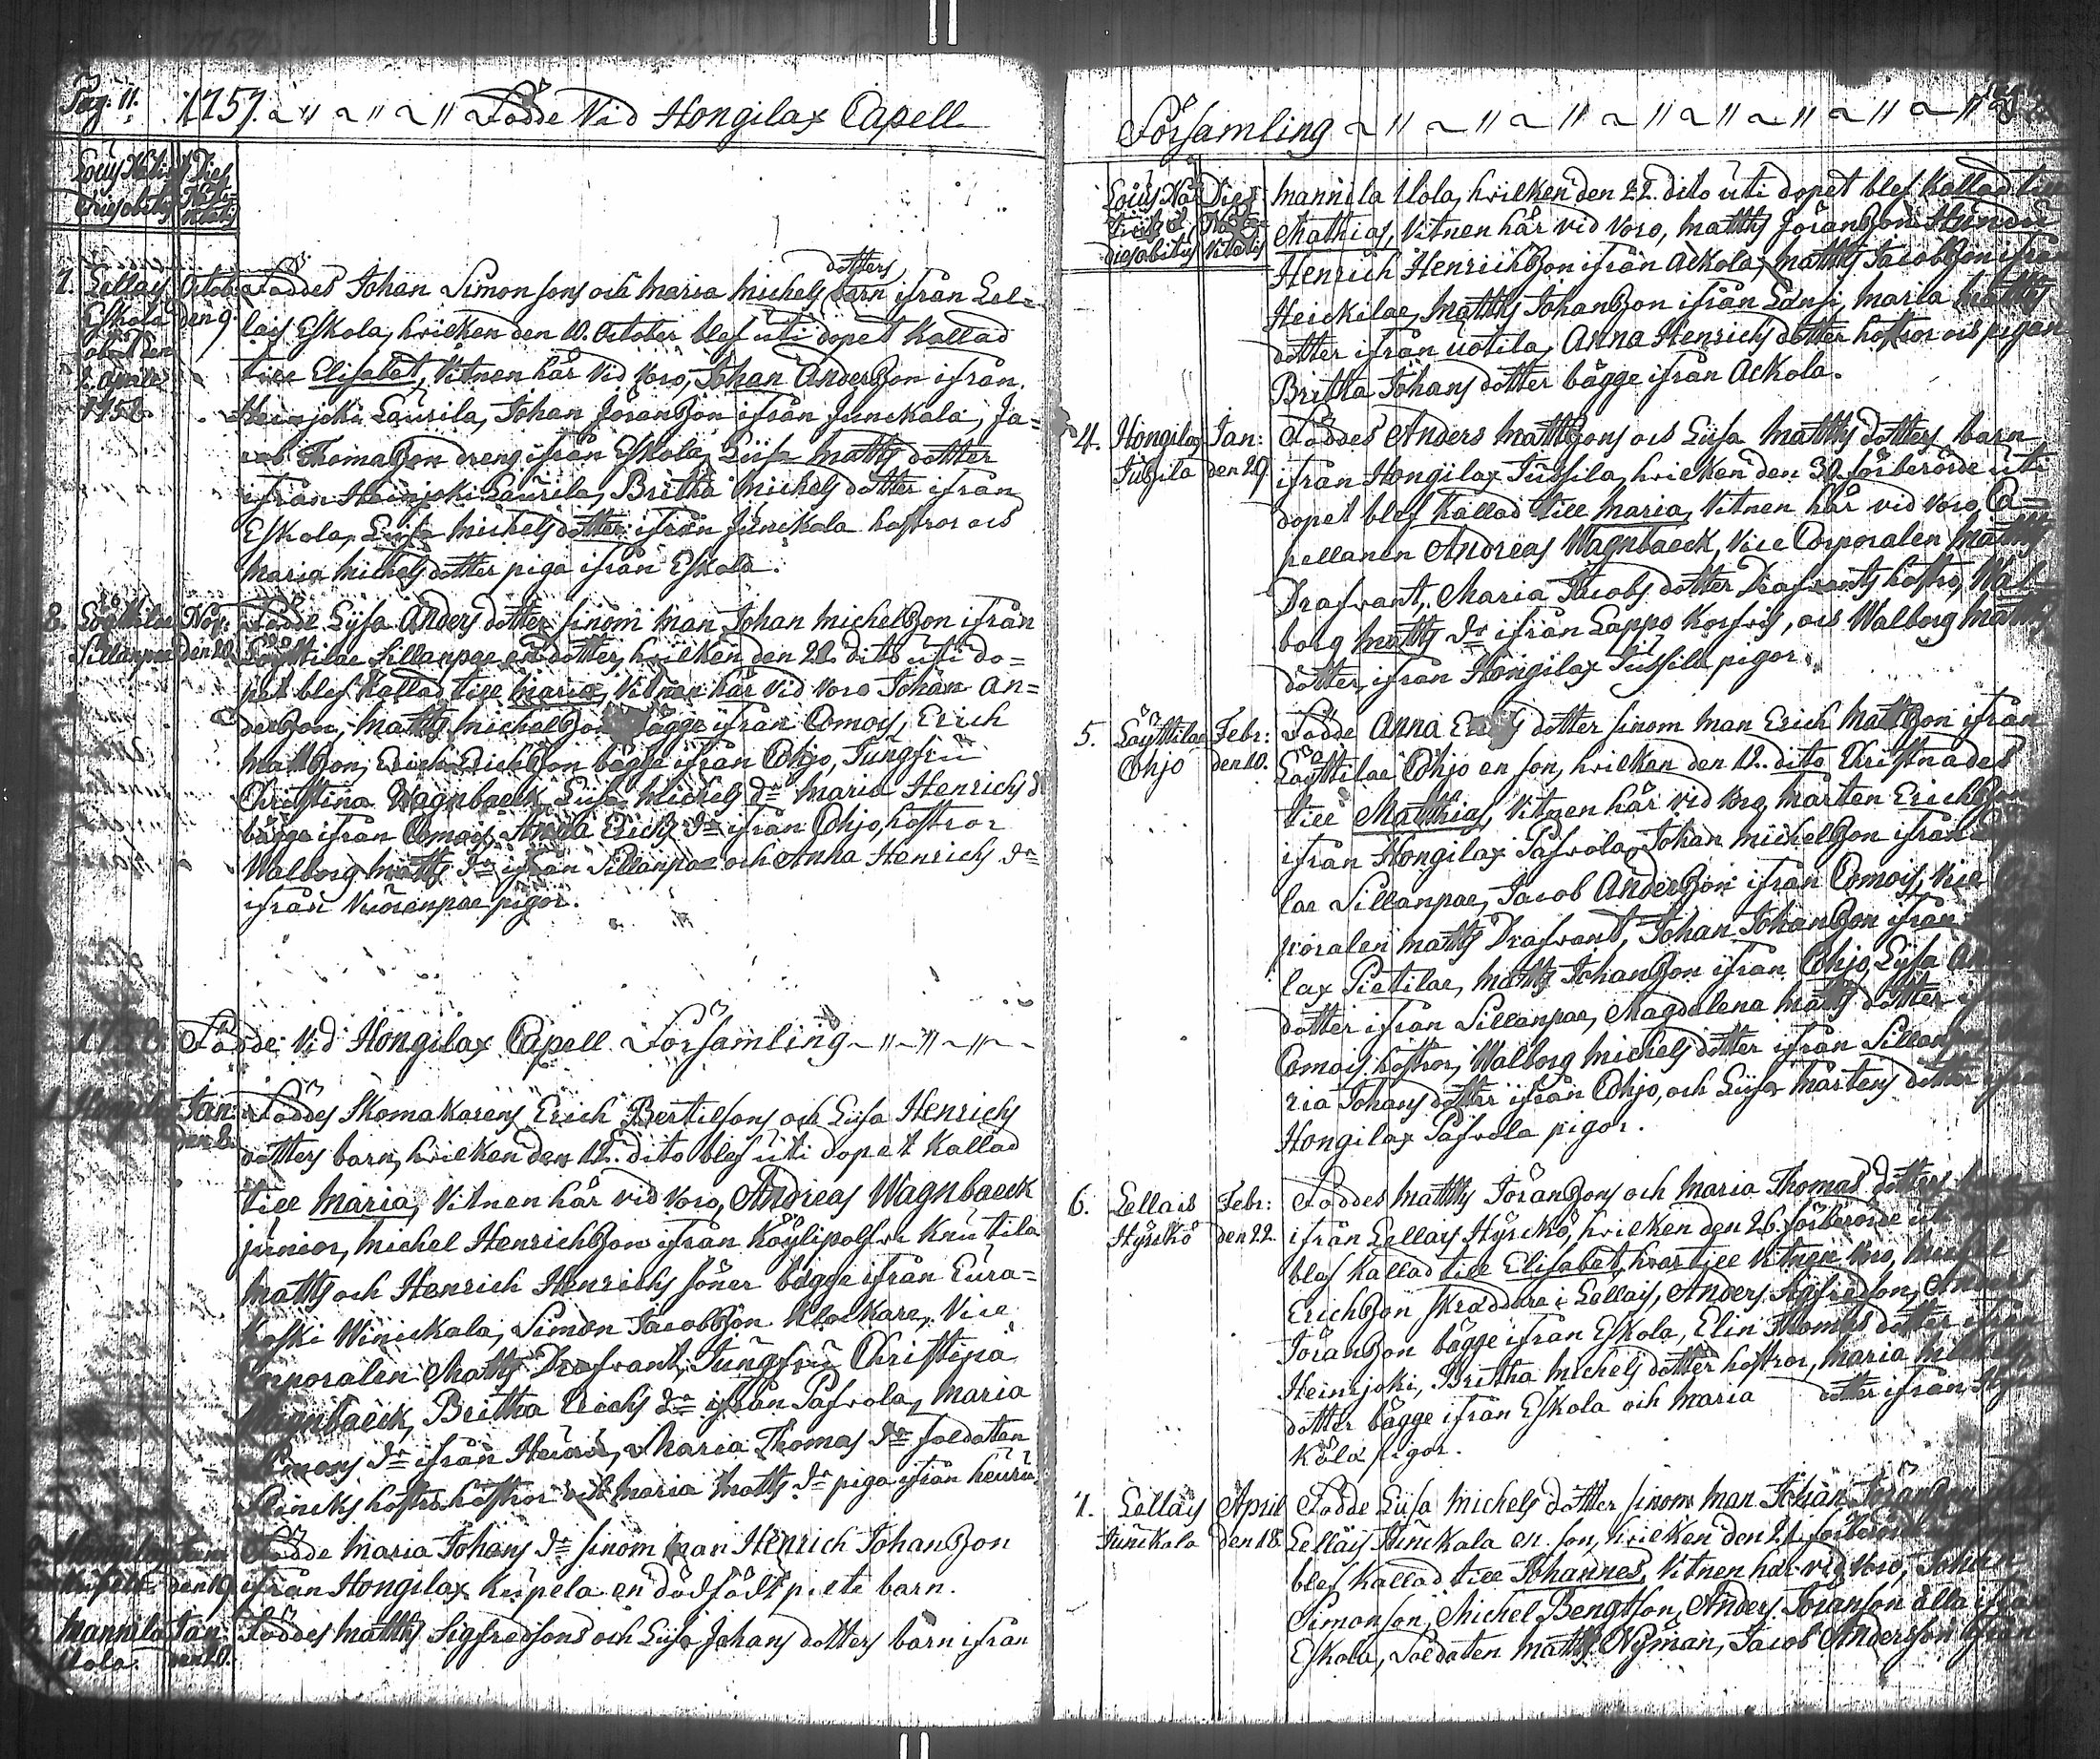 Pag: 11. 1757. Födde Vid Hongilax Capell
Locus Nati. et Dies obitus
Dies Nativitatis
7. Lellais Eskola obiit den 2. Aprilis 1758.
Octob. den 9.
Föddes Johan Simonsons och Maria Michels dotters barn ifrån Lel=
lais Eskola, hvilken den 10. October blef uti dopet kallad
till Elisabet, Vitnen här vid voro, Johan Andersson ifrån
Heinjoki Laurila, Johan Jöransson ifrån Junckala, Ja=
cob Thomasson dreng ifrån Eskola, Liisa Matts dotter
ifrån Heinjoki Laurila, Britha Michels dotter ifrån
Eskola, Liisa Michels dotter ifrån Junckala hustror och
Maria Michels dotter piga ifrån Eskola.
8. Löyttilae Sillanpae
Nov: den 20.
Födde Liisa Anders dotter sinom man Johan Michelsson ifrån
Löyttilae Sillanpae en dotter, hvilken den 21. dito uti do=
pet blef kallad till Maria, Vitnen här vid voro Johan An=
dersson, Matts Michelsson bägge ifrån Comois, Erich
Mattsson, Erich Erichsson bägge ifrån Ohjo, Jungfru
Christina Wagnbaeck, Liisa Michels dr Maria Henrichs d
bägge ifrån Comois, Anna Erichs dr ifrån Ohjo, hustror
Walborg Matts dr ifrån Sillanpae och Anna Henrichs dr
ifrån Vuorenpae pigor.
1758. Födde Vid Hongilax Capell Församling
1. Hongilax
Jan: den 8.
Föddes Skomakarens Erich Bertilsons och Liisa Henrichs
dotters barn, hvilken den 12. dito blef uti dopet kallad
till Maria, Vitnen här vid voro, Andreas Wagnbaeck
junior, Michel Henrichsson ifrån Köylipolfve Knutila
Matts och Henrich Henrichs söner bägge ifrån Eura=
koski Winickala, Simon Jacobsson Klockare, Vice
Corporalen Matts Drafvant, Jungfru Christina
Wagnbaeck, Britha Erichs dr ifrån Pafvola, Maria
Simons dr ifrån Heinis, Maria Thomas dr soldaten
hustro hustror och Maria Matts dr piga ifrån
Jan: den 19.
Födde Maria Johans dr sinom man Henrich Johansson
ifrån Hongilax Kuipela en dödfödt piete barn.
3. Mannila Uola.
Jan: den 20.
Föddes Matths Sigfredsons och Liisa Johans dotters barn ifrån
Församling
Locus Nativitatis et dies obitus
Dies Nativitatis
Mannila Uola, hvilken den 22. dito uti dopet blef kallad till
Mathias, Vitnen här vid voro, Matths Jöransson
Henrich Henrichsson ifrån Ackola, Matths Jacobsson ifrån
Heickilae, Matths Johansson ifrån Länsi, Maria Matths
dotter ifrån Uotila, Anna Henrichs dotter hustror och pigan
Britha Johans dotter bägge ifrån Ackola.
4. Hongilax Jussila
Jan: den 29
Föddes Anders Matthssons och Liisa Matths dotters barn
ifrån Hongilax Jussila, hvilken den 30. förberörde uti
dopet blef kallad till Maria, Vitnen här vid voro, Ca=
pellanen Andreas Wagnbaeck, Vice Corporalen Matths
Drafvant, Maria Jacobs dotter Drafvants hustro, Wal=
borg Matths dr ifrån Lappo Korfvis, och Walborg Matths
dotter ifrån Hongilax Jussila pigor.
5. Löyttilae Ohjo
Febr: den 10.
Födde Anna Erichs dotter sinom man Erich Mattsson ifrån
Löyttilae Ohjo en son, hvilken den 12. dito Christnades
till Matthias, Vitnen här vid voro, Mårten Erichsson
ifrån Hongilax Pafvola, Johan Michelsson ifrån
lae Sillanpae, Jacob Andersson ifrån Comois, Vice
poralen Matths Drafvant, Johan Johansson ifrån
lax Pietilae, Matths Johansson ifrån Ohjo, Liisa
dotter ifrån Sillanpae, Magdalena Matths dotter
Comois hustror, Walborg Michels dotter ifrån
ria Johans dotter ifrån Ohjo, och Liisa Mårtens dotter
Hongilax Pafvola pigor.
6. Lellais Hyrckö
Febr: den 22.
Föddes Matths Jöranssons och Maria Thomas dotters
ifrån Lellais Hyrckö, hvilken den 26. förberörde
blef kallad till Elisabet, hvartill Vitnen voro, Michel
Erichsson skräddare i Lellais, Anders Sigfredson, Anders
Jöransson bägge ifrån Eskola, Elin Thomas dotter ifrån
Heinijoki, Britha Michels dotter hustror, Maria
dotter bägge ifrån Eskola och Maria dotter ifrån
kölä pigor.
7. Lellais Junckala
April den 18.
Födde Liisa Michels dotter sinom man Johan
Lellais Junckala en son, hvilken den 21. förberörde
blef kallad till Johannes, Vitnen här vid voro, Johan
Simonson, Michel Bengtson, Anders Jöranson alla ifrån
Eskola, Soldaten Matths Nyman, Jacob Andersson ifrån